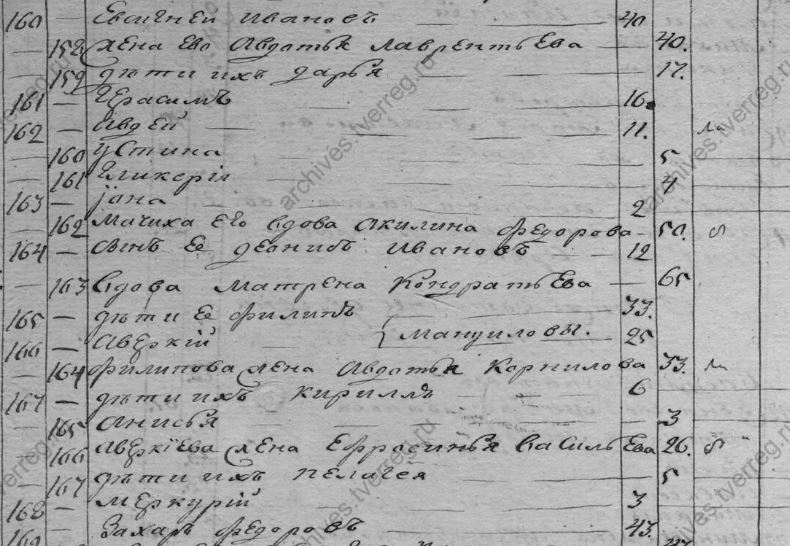 160 — Евсигней Ивановъ 40
158 жена ево Авдотья Лаврентьева 40.
159 дѣти ихъ Дарья 17.
161 — Герасимъ 16
162 — Авдей 11.
160 Устина 5
161 Гликерія 4
163 — Іона 2
162 Мачиха его вдова Акилина Федорова 50.
164 — сынъ ее Деонисъ Ивановъ 12
163 вдова Матрена Кондратьева 65
165 — дѣти ее Филипъ 33.
166 — Аверкій } Мануиловы. 25
164 Филипова жена Авдотья Корнилова 33.
167 — дѣти ихъ Кирилъ 6
165 Анисья 3
166 Аверкіева жена Ефросинья Васильева 26.
167 дѣти ихъ Пелагея 5
168 — Меркурій 3
169 Захаръ Федоровъ 43.
archives.tverreg.ru
archives.tverreg.ru